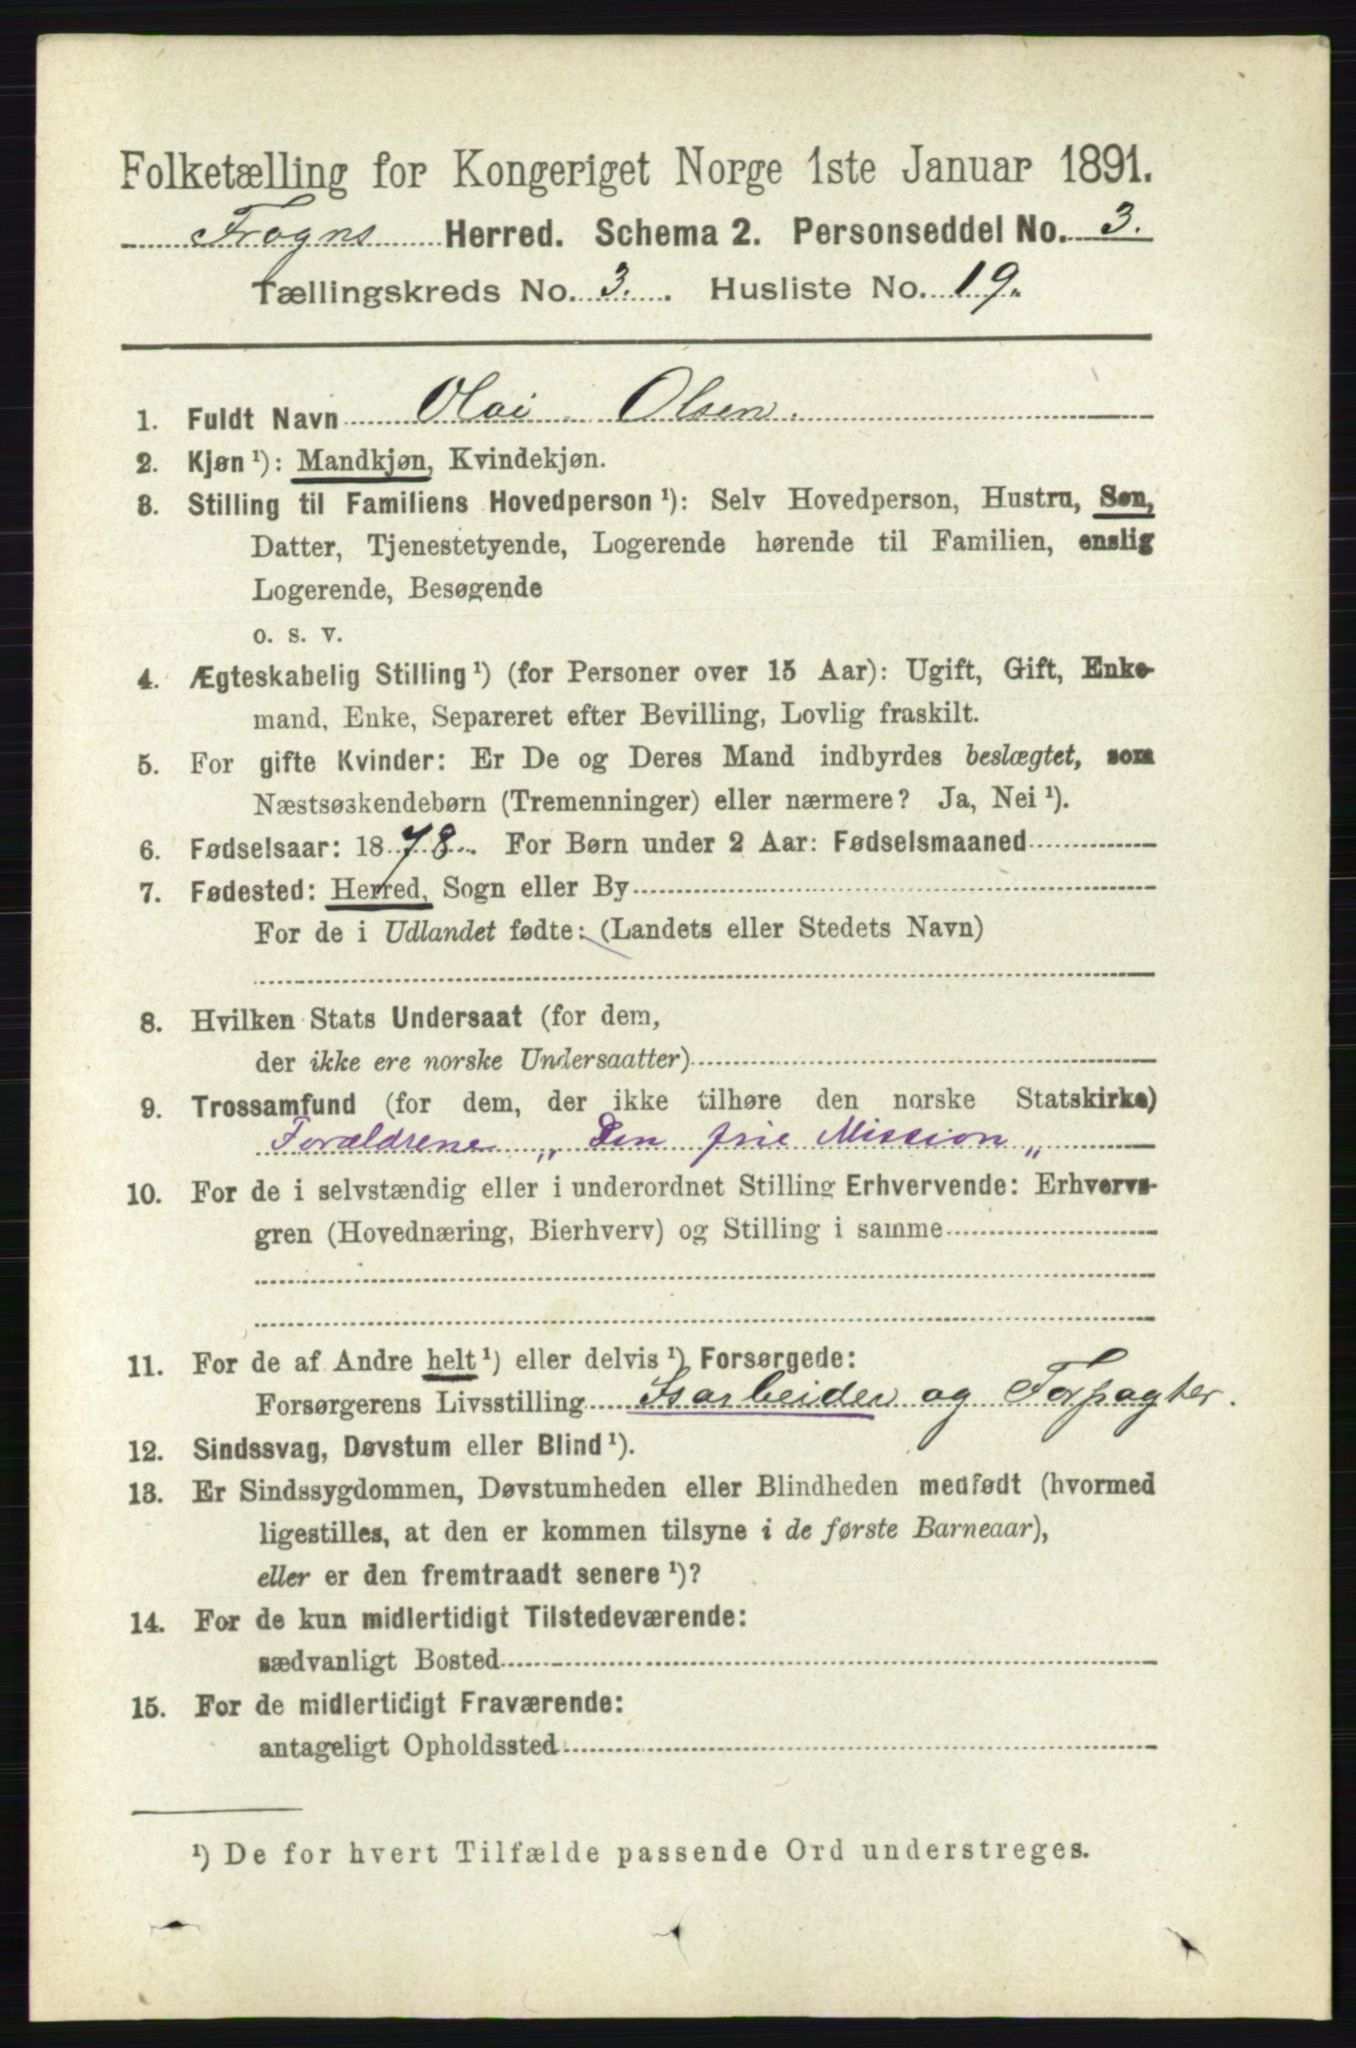 Folketælling for Kongeriget Norge 1ste Januar 1891.
Frogns Herred. Schema 2. Personseddel No. 3.
Tællingskreds No. 3. Husliste No. 19.
1. Fuldt Navn Olai Olsen.
2. Kjøn ¹): Mandkjøn, Kvindekjøn.
3. Stilling til Familiens Hovedperson ¹): Selv Hovedperson, Hustru, Søn,
Datter, Tjenestetyende, Logerende hørende til Familien, enslig
Logerende, Besøgende
o. s. v.
4. Ægteskabelig Stilling ¹) (for Personer over 15 Aar): Ugift, Gift, Enke-
mand, Enke, Separeret efter Bevilling, Lovlig fraskilt.
5. For gifte Kvinder: Er De og Deres Mand indbyrdes beslægtet, som
Næstsøskendebørn (Tremenninger) eller nærmere? Ja, Nei ¹).
6. Fødselsaar: 1878. For Børn under 2 Aar: Fødselsmaaned
7. Fødested: Herred, Sogn eller By
For de i Udlandet fødte: (Landets eller Stedets Navn)
8. Hvilken Stats Undersaat (for dem,
der ikke ere norske Undersaatter)
9. Trossamfund (for dem, der ikke tilhøre den norske Statskirke)
Forældrene „Den frie Mission„
10. For de i selvstændig eller i underordnet Stilling Erhvervende: Erhvervs-
gren (Hovednæring, Bierhverv) og Stilling i samme
11. For de af Andre helt ¹) eller delvis ¹) Forsørgede:
Forsørgerens Livsstilling Isarbeider og Forpagter.
12. Sindssvag, Døvstum eller Blind ¹).
13. Er Sindssygdommen, Døvstumheden eller Blindheden medfødt (hvormed
ligestilles, at den er kommen tilsyne i de første Barneaar),
eller er den fremtraadt senere ¹)?
14. For de kun midlertidigt Tilstedeværende:
sædvanligt Bosted
15. For de midlertidigt Fraværende:
antageligt Opholdssted
¹) De for hvert Tilfælde passende Ord understreges.